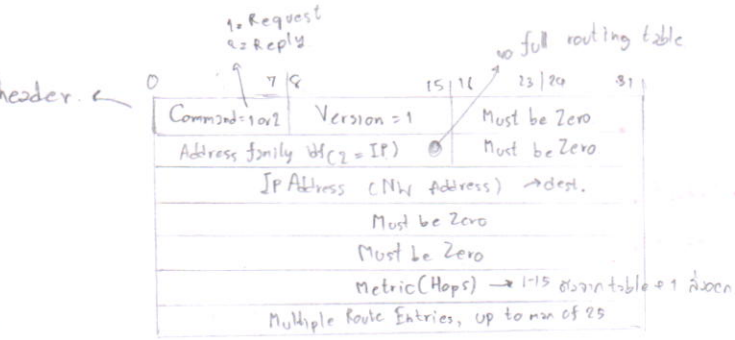 1 = Request
2 = Reply
0 full routing table
header.
0 7 | 8 15 | 16 23 | 24 31
Command = 1 or 2 Version = 1 Must be Zero
Address family (2 = IP) Must be Zero
IP Address (NW Address) → dest.
Must be Zero
Must be Zero
Metric (Hops) → 1-15 table + 1
Multiple Route Entries, up to max of 25